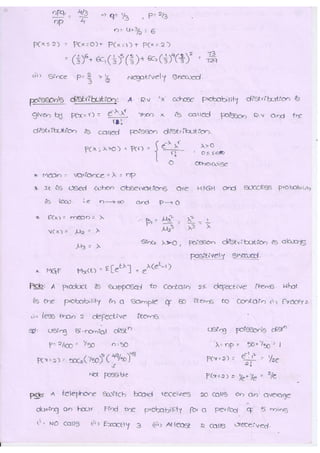 npq/np = 4/3/4 ⇒ q = 1/3 , P = 2/3
n = 4 × 3/2 = 6
P(x≤2) = P(x=0) + P(x=1) + P(x=2)
= (1/3)^6 + 6C1 (1/3)^5 (2/3) + 6C2 (1/3)^4 (2/3)^2 = 73/729
Since P = 2/3 > 1/2 Negatively Skewed.
poisson's distribution: A R.V 'x' whose probability distribution is
given by P(x=r) = e^-λ λ^r / r! then x is called poisson R.v and the
distribution is called poisson distribution.
P(x; λ>0) = P(r) = { e^-λ λ^r / r! λ>0
0 otherwise
* mean = variance = λ = np
* It is used when observations are HIGH and success probability
is low i.e n→∞ and P→0
* E(x) = mean = λ
V(x) = μ2 = λ
μ3 = λ
β1 = μ3²/μ2³ = λ²/λ³ = 1/λ
Since λ>0, poisson distribution is always
positively skewed
* MGF Mx(t) = E[e^tx] = e^λ(e^t-1)
Pb: A product is supposed to contain 2% defective items. What
is the probability in a sample of 50 items to contain i) Exactly 2
ii) less than 2 defective items.
Using Bi-nomial distn
using poisson's distn
P = 2/100 = 1/50 n = 50
λ = np = 50 × 1/50 = 1
P(x=2) = 50C2 (1/50)^2 (49/50)^48
P(x=2) = e^-1 1^2 / 2! = 1/2e
Not possible
P(x<2) = 1/e + 1/e = 2/e
A telephone switch board receives 20 calls on an average
during an hour. Find the probability for a period of 5 mins
i) NO calls ii) Exactly 3 iii) Atleast 2 calls received.